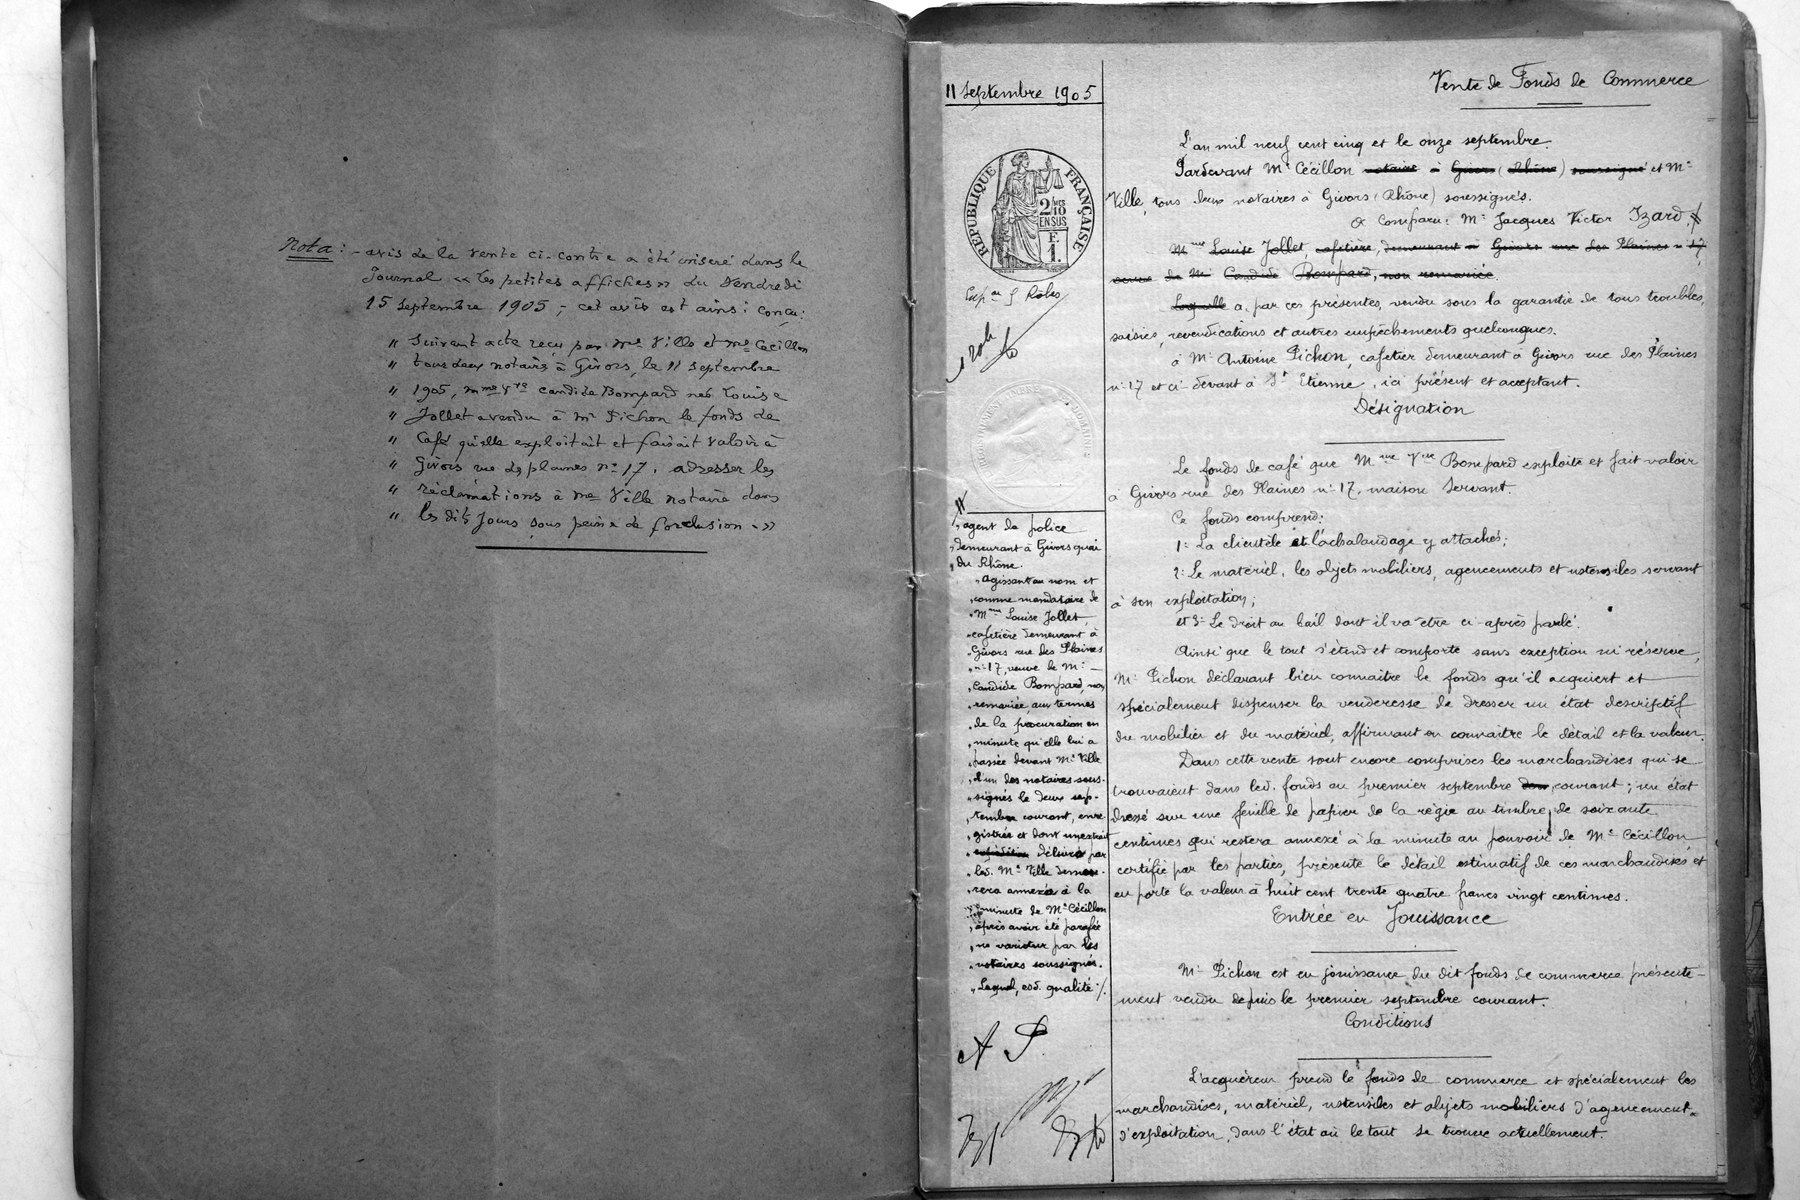 Nota : - avis de la vente ci-contre a été inseré dans le
Journal « Les petites affiches » du Vendredi
15 Septembre 1905, - cet avis est ainsi conçu :
" Suivant acte reçu par Mes Ville et Me Cécillon
" tous deux notaires à Givors, le 11 septembre
" 1905, Mme Vve Candide Bompard née Louise
" Jollet a vendu à Mr Pichon le fonds de
" Café qu'elle exploitait et faisait valoir à
" Givors rue des plaines n° 17, adresser les
" réclamations à Me Ville notaire dans
" les dix jours sous peine de forclusion - »
11 Septembre 1905
RÉPUBLIQUE FRANÇAISE
2/10 MES
EN SUS
F.
1.
agent de police
demeurant à Givors quai
du Rhône.
" Agissant au nom et
" comme mandataire de
" Mme Louise Jollet,
" cafetière demeurant à
" Givors rue des Plaines
" n° 17, veuve de Mr
" Candide Bompard, non
" remariée, aux termes
" de la procuration en
" minute qu'elle lui a
" passée devant Me Ville
" l'un des notaires sous-
" signés le deux sep-
" tembre courant, enre-
" gistrée et dont un extrait
" expédition délivré par
" led. Me Ville demeu-
" rera annexé à la
" minute de Me Cécillon
" après avoir été parafée
" ne varietur par les
" notaires soussignés.
" Lequel, esd. qualité /.
A P
Vente de Fonds de Commerce
L'an mil neuf cent cinq et le onze septembre.
Pardevant Me Cécillon notaire à Givors (Rhône) soussigné et Me
Ville, tous deux notaires à Givors (Rhône) soussignés.
A Comparu : Mr Jacques Victor Izard,
Mme Louise Jollet, cafetière, demeurant à Givors rue des Plaines n° 17,
veuve de Mr Candide Bompard, non remariée.
Laquelle a, par ces présentes, vendu sous la garantie de tous troubles,
saisies, revendications et autres empêchements quelconques.
à Mr Antoine Pichon, cafetier demeurant à Givors rue des Plaines
n° 17 et ci-devant à St Etienne, ici présent et acceptant.
Désignation
Le fonds de café que Mme Vve Bompard exploite et fait valoir
à Givors rue des Plaines n° 17, maison Servant.
Ce fonds comprend :
1° La clientèle et l'achalandage y attachés ;
2° Le matériel, les objets mobiliers, agencements et ustensiles servant
à son exploitation ;
et 3° Le droit au bail dont il va être ci-après parlé.
Ainsi que le tout s'étend et comporte sans exception ni réserve,
Mr Pichon déclarant bien connaître le fonds qu'il acquiert et
spécialement dispenser la venderesse de dresser un état descriptif
du mobilier et du matériel, affirmant en connaître le détail et la valeur.
Dans cette vente sont encore comprises les marchandises qui se
trouvaient dans led. fonds au premier septembre courant ; un état
dressé sur une feuille de papier de la régie au timbre de soixante
centimes qui restera annexé à la minute au pouvoir de Me Cécillon,
certifié par les parties, présente le détail estimatif de ces marchandises et
en porte la valeur à huit cent trente quatre francs vingt centimes.
Entrée en Jouissance
Mr Pichon est en jouissance du dit fonds de commerce présente-
ment vendu depuis le premier septembre courant.
Conditions
L'acquéreur prend le fonds de commerce et spécialement les
marchandises, matériel, ustensiles et objets mobiliers d'agencement
d'exploitation, dans l'état où le tout se trouve actuellement.